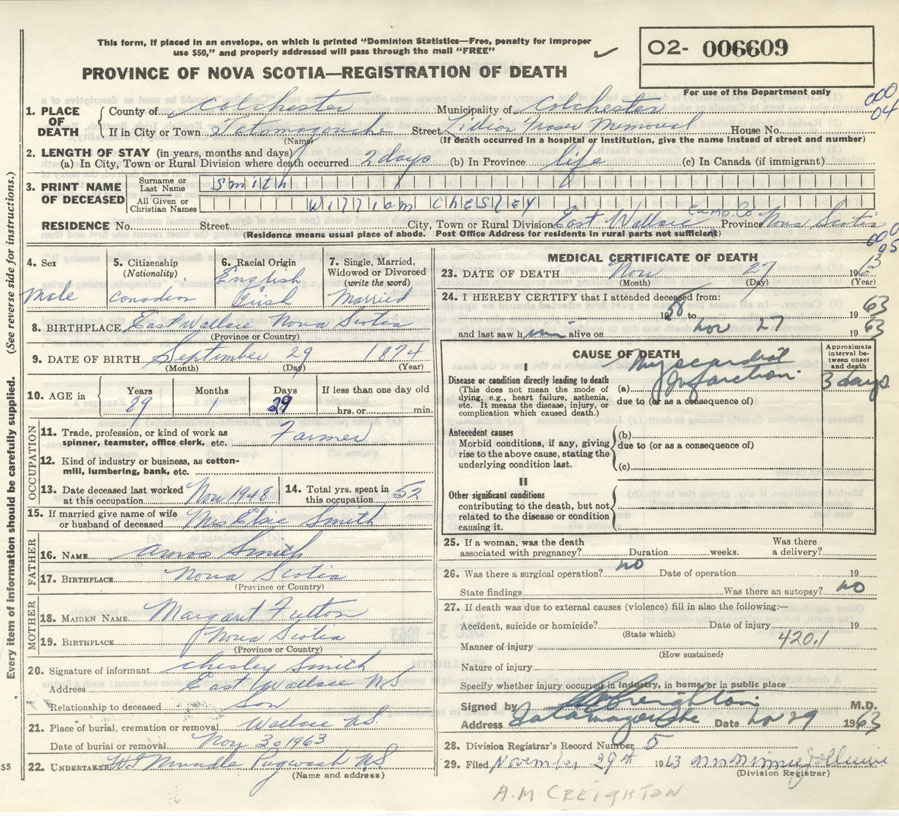 This form, if placed in an envelope, on which is printed "Dominion Statistics—Free, penalty for improper
use $50," and properly addressed will pass through the mail "FREE"
O2- 006609
For use of the Department only
PROVINCE OF NOVA SCOTIA—REGISTRATION OF DEATH
1. PLACE OF DEATH
County of Colchester Municipality of Colchester
If in City or Town Tatamagouche Street Lillian Fraser Memorial House No.
(Name) (If death occurred in a hospital or institution, give the name instead of street and number)
2. LENGTH OF STAY (in years, months and days)
(a) In City, Town or Rural Division where death occurred 2 days (b) In Province life (c) In Canada (if immigrant)
3. PRINT NAME OF DECEASED
Surname or Last Name Smith
All Given or Christian Names William Chesley
RESIDENCE No. Street City, Town or Rural Division East Wallace Cumb. Co Province Nova Scotia
(Residence means usual place of abode. Post Office Address for residents in rural parts not sufficient)
(See reverse side for instructions.)
Every item of information should be carefully supplied.
4. Sex Male
5. Citizenship (Nationality) Canadian
6. Racial Origin English Irish
7. Single, Married, Widowed or Divorced (write the word) Married
8. BIRTHPLACE East Wallace Nova Scotia
(Province or Country)
9. DATE OF BIRTH September 29 1874
(Month) (Day) (Year)
10. AGE in Years Months Days If less than one day old
89 1 29 hrs. or min.
OCCUPATION
11. Trade, profession, or kind of work as spinner, teamster, office clerk, etc. Farmer
12. Kind of industry or business, as cotton-mill, lumbering, bank, etc.
13. Date deceased last worked at this occupation Nov 1948
14. Total yrs. spent in this occupation 52
15. If married give name of wife or husband of deceased Mrs Elsie Smith
FATHER
16. NAME Amos Smith
17. BIRTHPLACE Nova Scotia
(Province or Country)
MOTHER
18. MAIDEN NAME Margaret
19. BIRTHPLACE Nova Scotia
(Province or Country)
20. Signature of informant Chesley Smith
Address East Wallace NS
Relationship to deceased Son
21. Place of burial, cremation or removal Wallace N.S.
Date of burial or removal Nov 30 1963
22. UNDERTAKER Pugwash N.S.
(Name and address)
55
MEDICAL CERTIFICATE OF DEATH
23. DATE OF DEATH Nov 27 1963
(Month) (Day) (Year)
24. I HEREBY CERTIFY that I attended deceased from:
1958 to Nov 27 1963
and last saw him alive on 1963
CAUSE OF DEATH
Approximate interval between onset and death
I
Disease or condition directly leading to death
(This does not mean the mode of dying, e.g., heart failure, asthenia, etc. It means the disease, injury, or complication which caused death.)
(a) Myocardial Infarction 3 days
due to (or as a consequence of)
Antecedent causes
Morbid conditions, if any, giving rise to the above cause, stating the underlying condition last.
(b)
due to (or as a consequence of)
(c)
II
Other significant conditions
contributing to the death, but not related to the disease or condition causing it.
25. If a woman, was the death associated with pregnancy? Duration weeks. Was there a delivery?
26. Was there a surgical operation? no Date of operation 19
State findings Was there an autopsy? no
27. If death was due to external causes (violence) fill in also the following:—
Accident, suicide or homicide? Date of injury 19
(State which) 420.1
Manner of injury
(How sustained)
Nature of injury
Specify whether injury occurred in industry, in home or in public place
Signed by Creighton M.D.
Address Tatamagouche Date Nov 29 1963
28. Division Registrar's Record Number 5
29. Filed November 29th 1963 Mrs Minnie
(Division Registrar)
A.M CREIGHTON